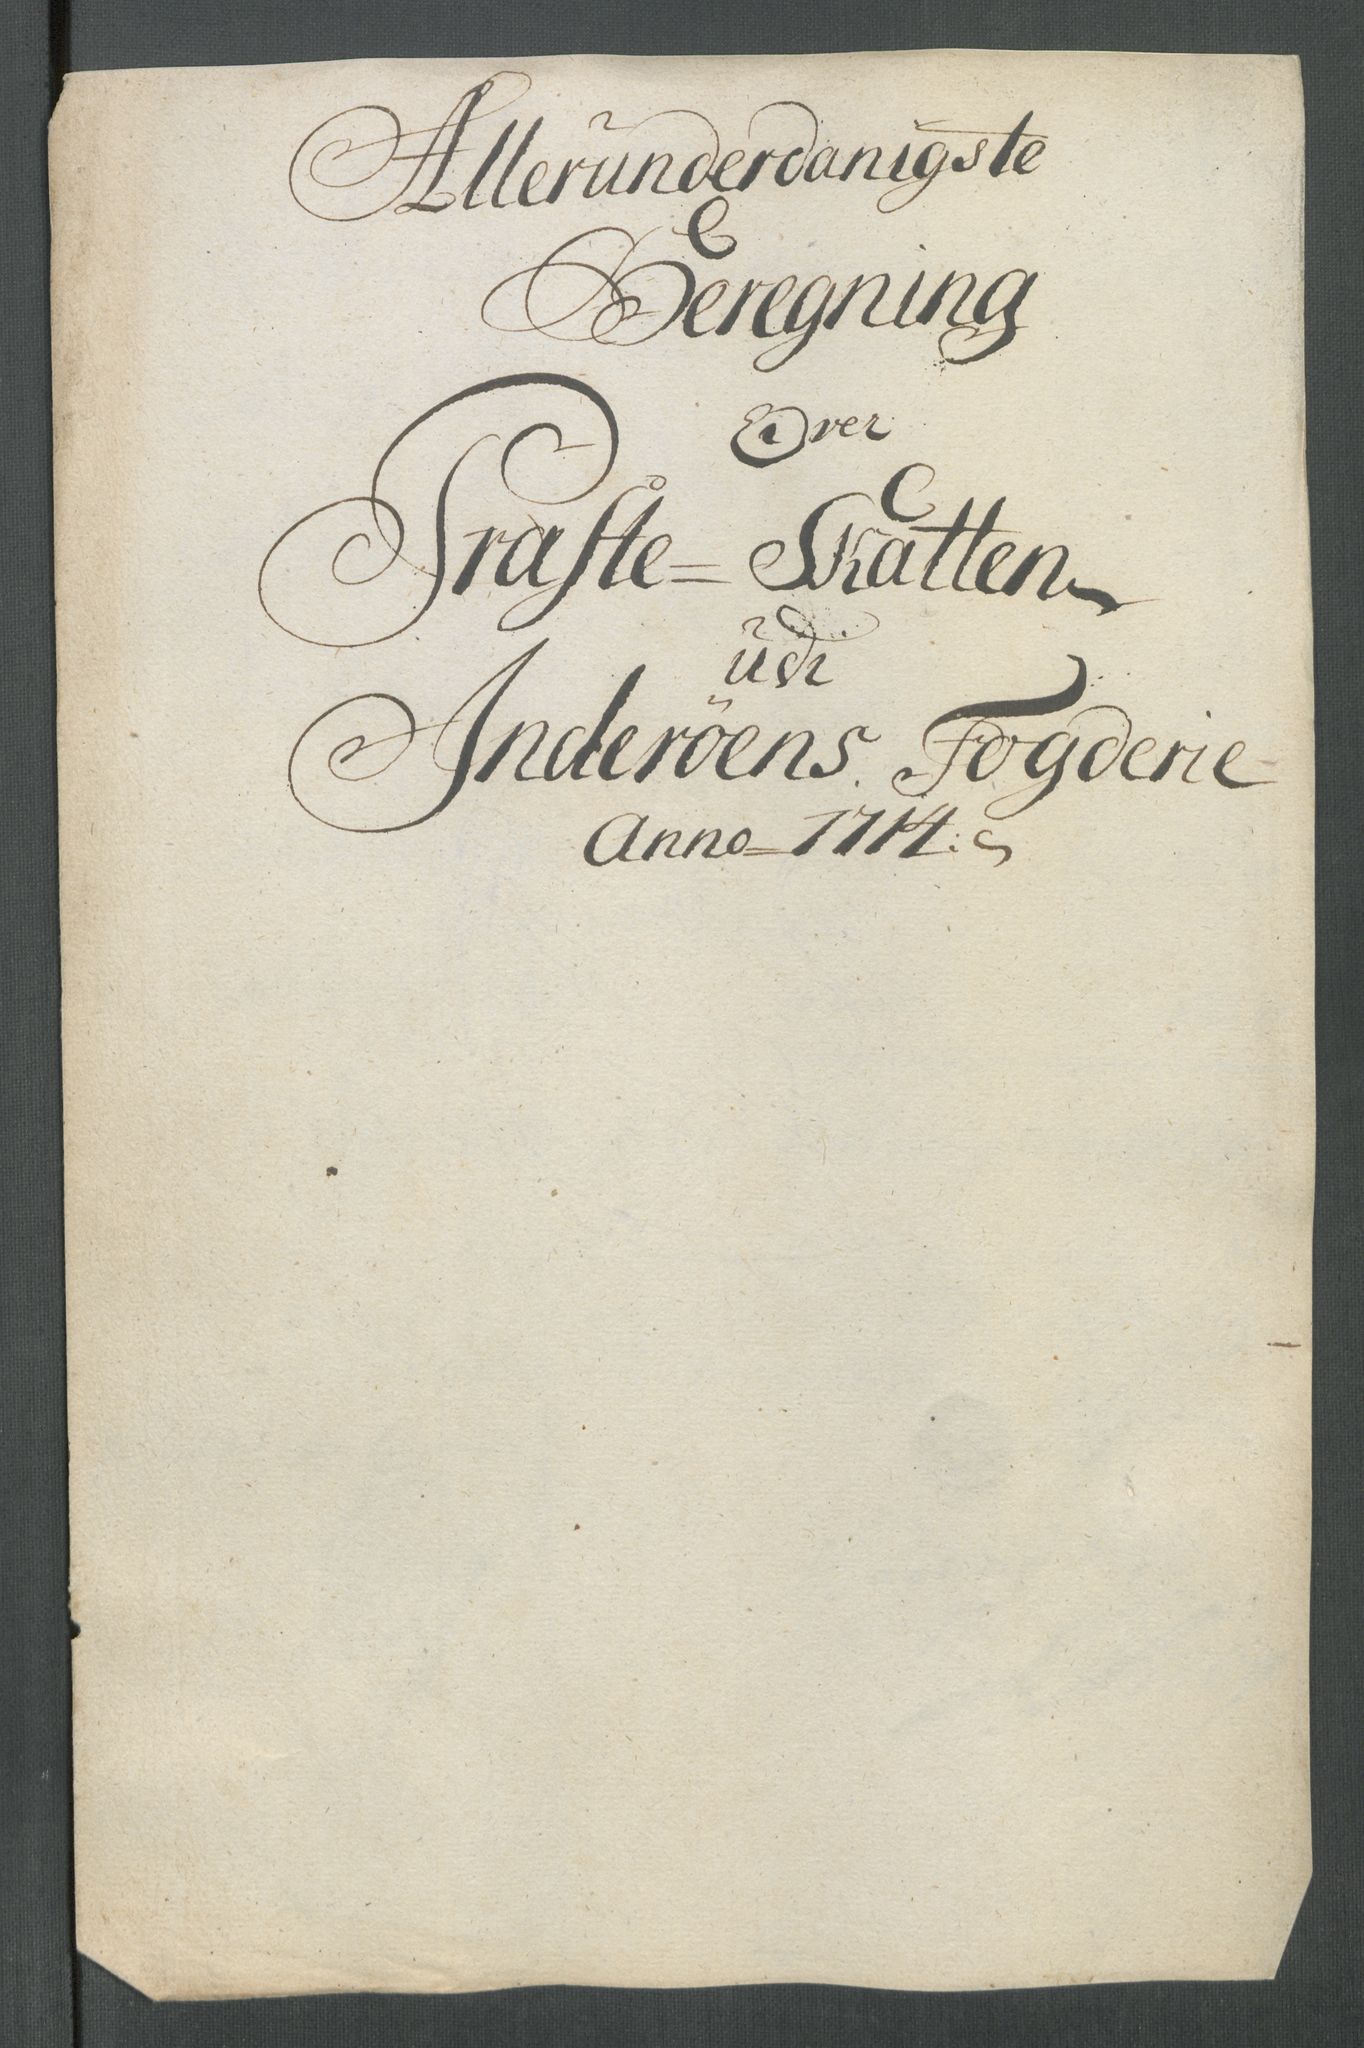 Allerunderdanigste
Beregning
Over
Præste= Skatten
udi
Inderöens Fogderie
Anno= 1714.